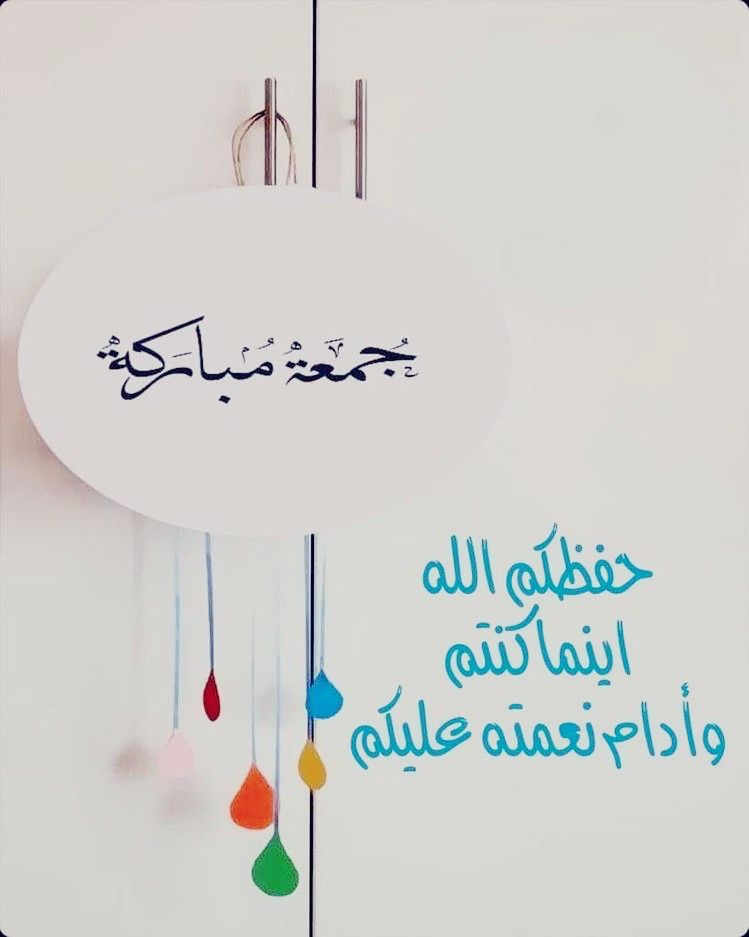 جُمعَةْ مُباركَةْ
حفظكم الله
اينما كنتم
وأدام نعمته عليكم